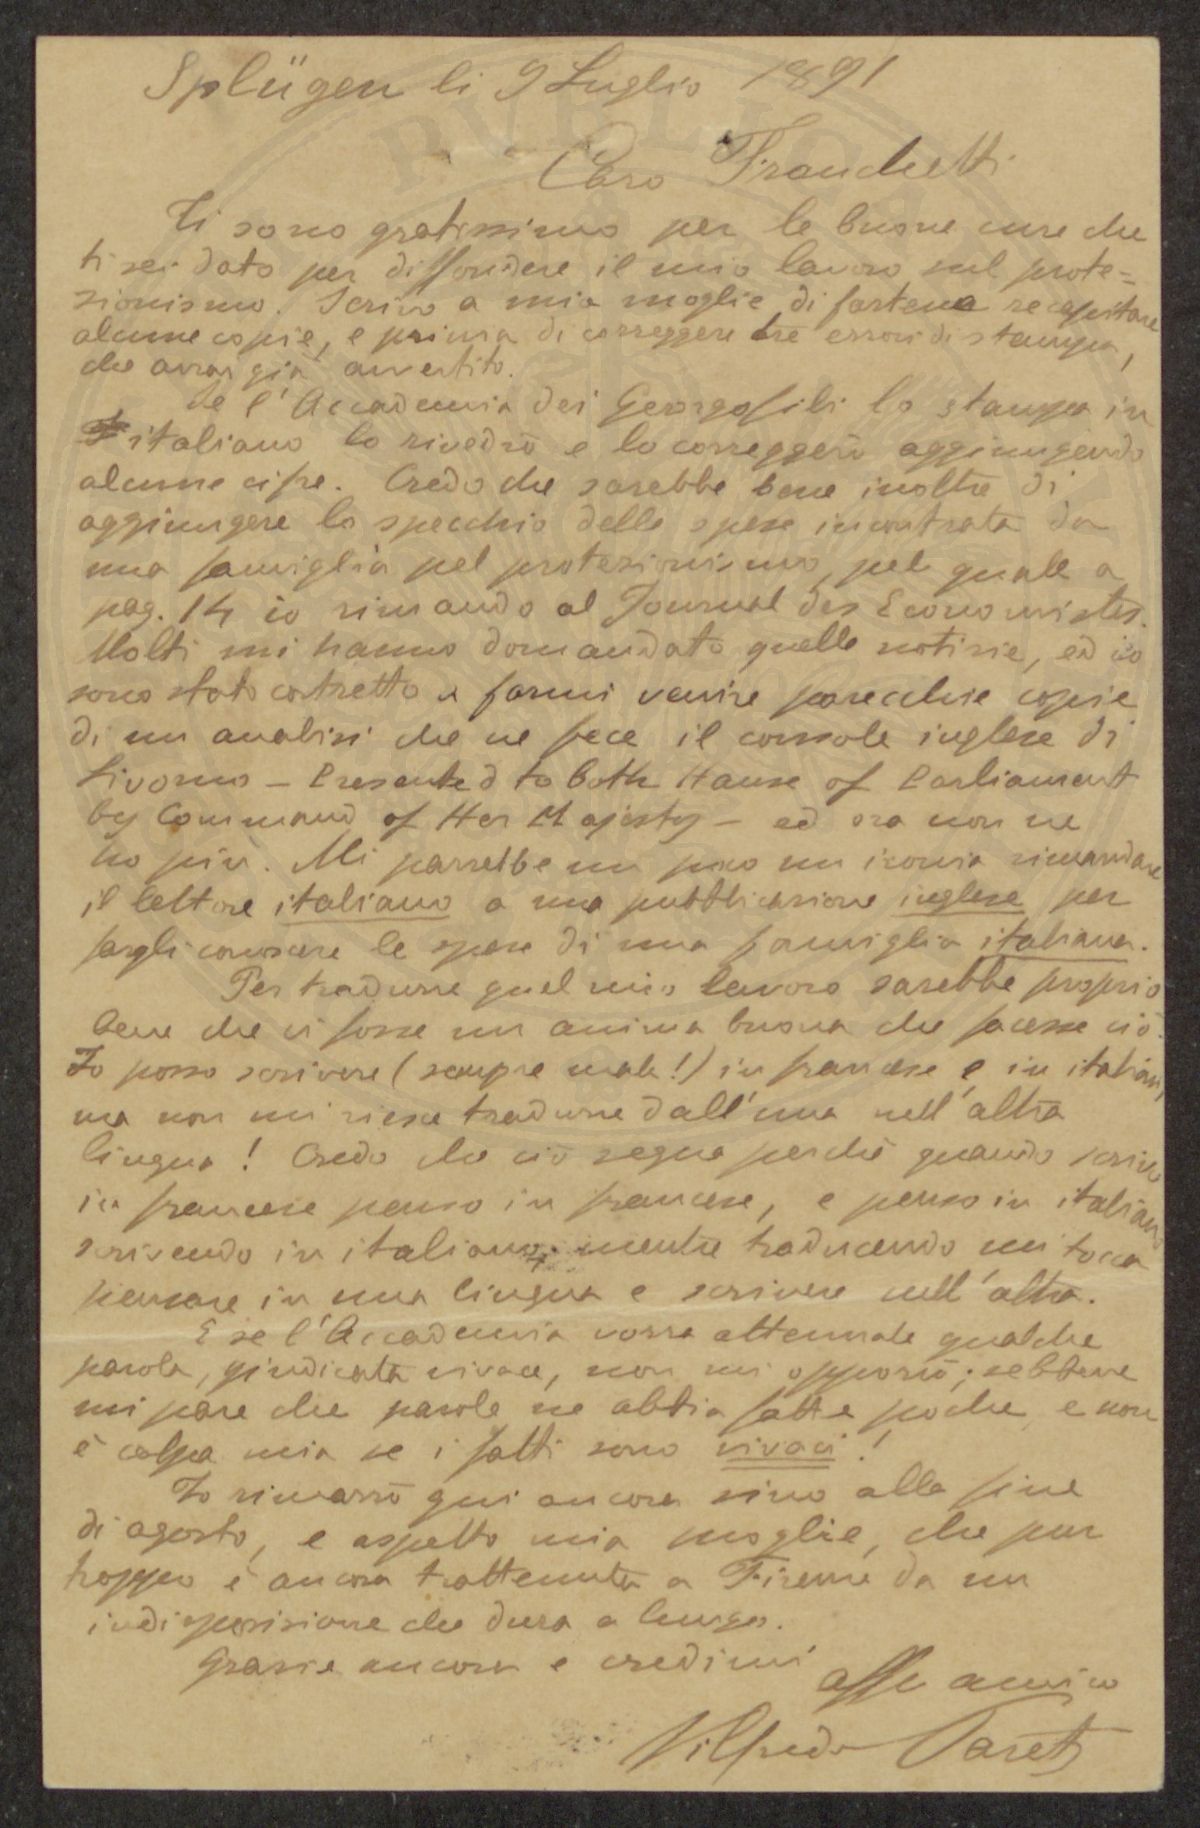 Splügen li 9 Luglio 1891
Caro Franchetti
Ti sono gratissimo per le buone cure che
ti sei dato per diffondere il mio lavoro sul prote=
zionismo. Scrivo a mia moglie di fartene recapitare
alcune copie, e prima di correggere tre errori di stampa,
che avrai già avvertito.
Se l'Accademia dei Georgofili lo stampa in
italiano lo rivedrò e lo correggerò aggiungendo
alcune cifre. Credo che sarebbe bene inoltre di
aggiungere lo specchio delle spese incontrate da
una famiglia pel protezionismo, pel quale a
pag. 14 io rimando al Journal des Economistes.
Molti mi hanno domandato quelle notizie, ed io
sono stato costretto a farmi venire parecchie copie
di un analisi che ne fece il console inglese di
Livorno – Presented to both Hause of Parliament
by Command of Her Majesty – ed ora non ne
ho più. Mi parrebbe un poco un ironia rimandare
il lettore italiano a una pubblicazione inglese per
fargli conoscere le spese di una famiglia italiana.
Per tradurre quel mio lavoro sarebbe proprio
bene che ci fosse un anima buona che facesse ciò.
Io posso scrivere (sempre male!) in francese e in italiano,
ma non mi riesce tradurre dall'una nell'altra
lingua! Credo che ciò segua perchè quando scrivo
in francese penso in francese, e penso in italiano
scrivendo in italiano, mentre traducendo mi tocca
pensare in una lingua e scrivere nell'altra.
E se l'Accademia vorrà attenuare qualche
parola, giudicata vivace, non mi opporrò; sebbene
mi pare che parole ne abbia fatte poche, e non
è colpa mia se i fatti sono vivaci!
Io rimarrò qui ancora sino alla fine
di agosto, e aspetto mia moglie, che pur
troppo è ancora trattenuta a Firenze da un
indisposizione che dura a lungo.
Grazie ancora e credimi
affo amico
Vilfredo Pareto